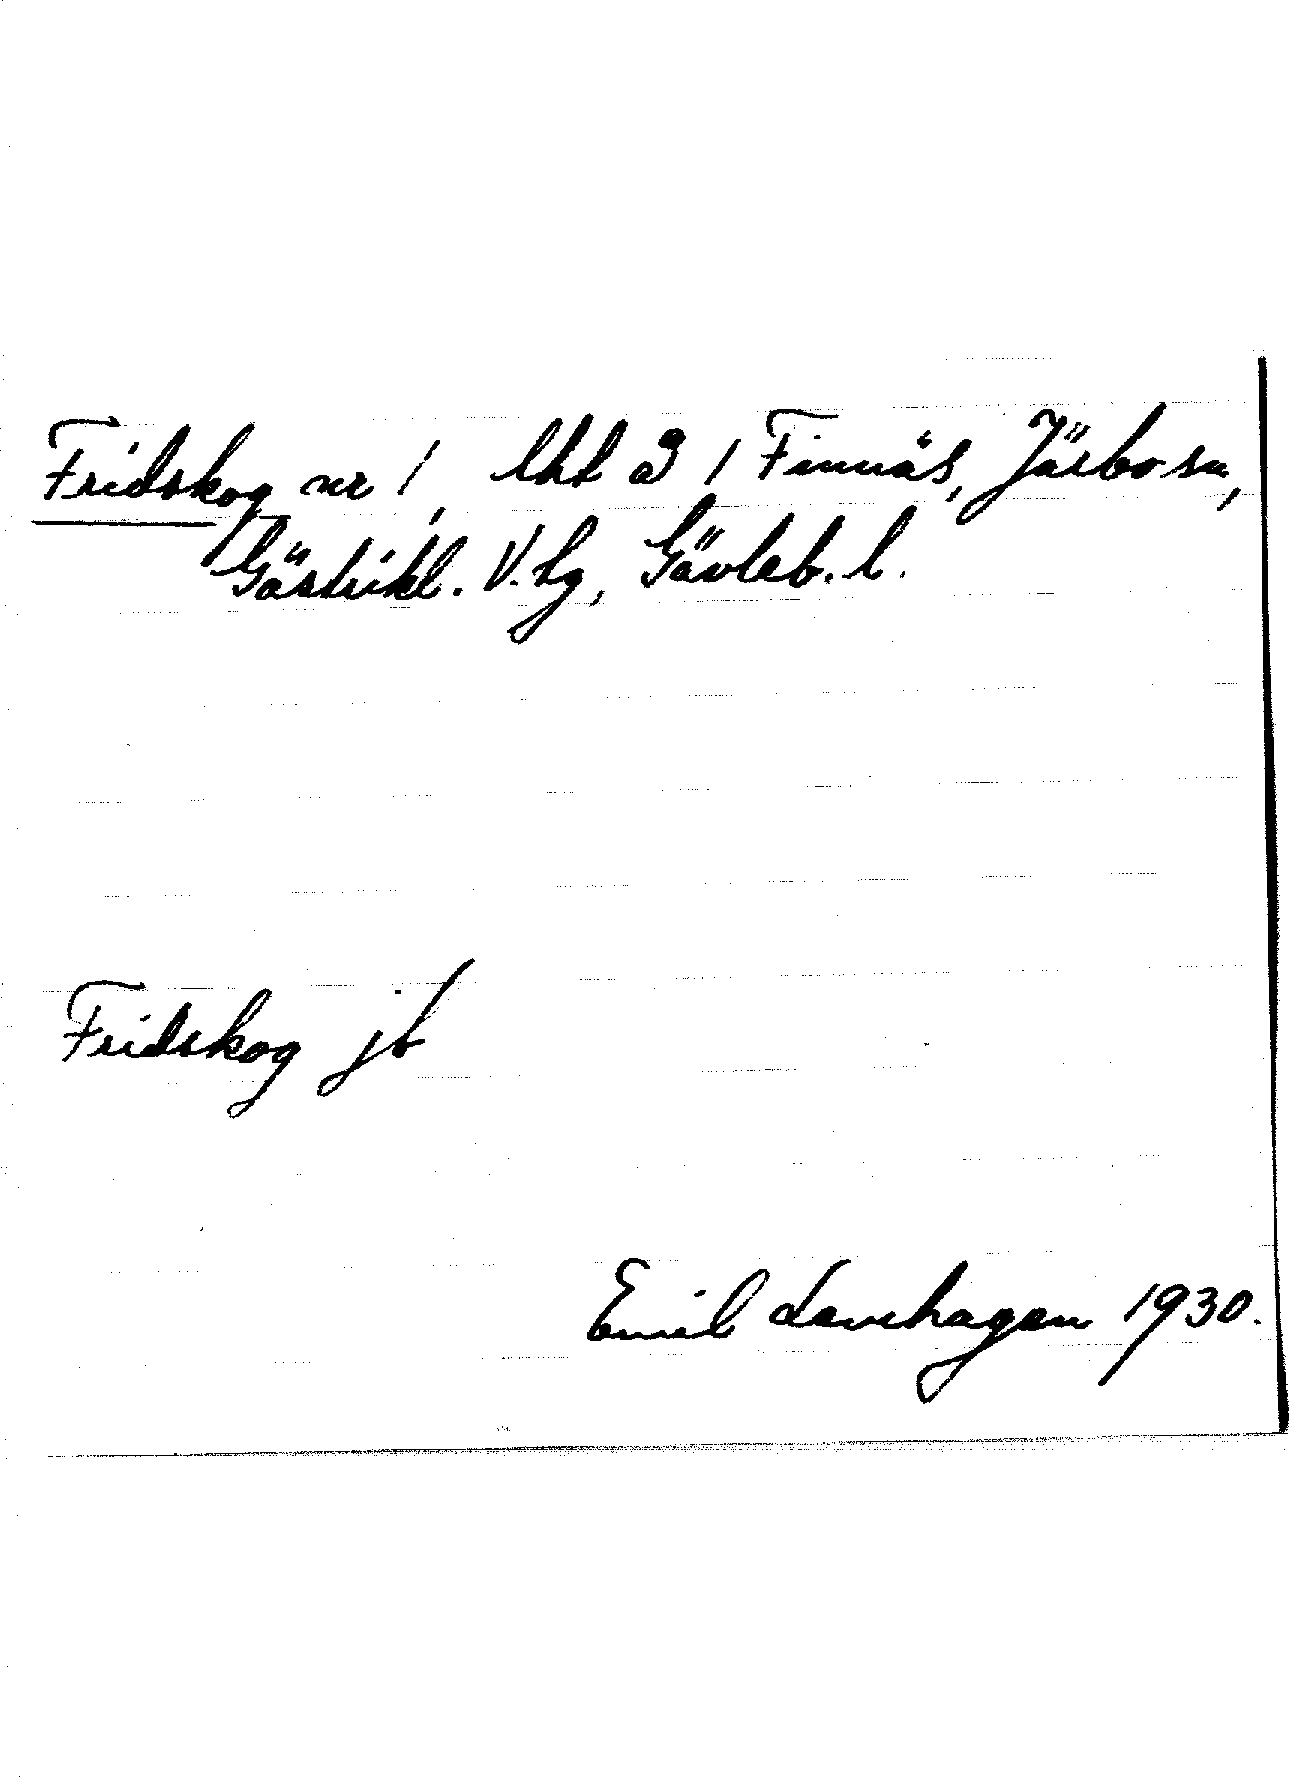 Fridskog nr 1, lht å 1 Finnäs, Järbo sn,
Gästrikl. V. hg, Gävleb. l.
Fridskog jb
Emil Levehagen 1930.